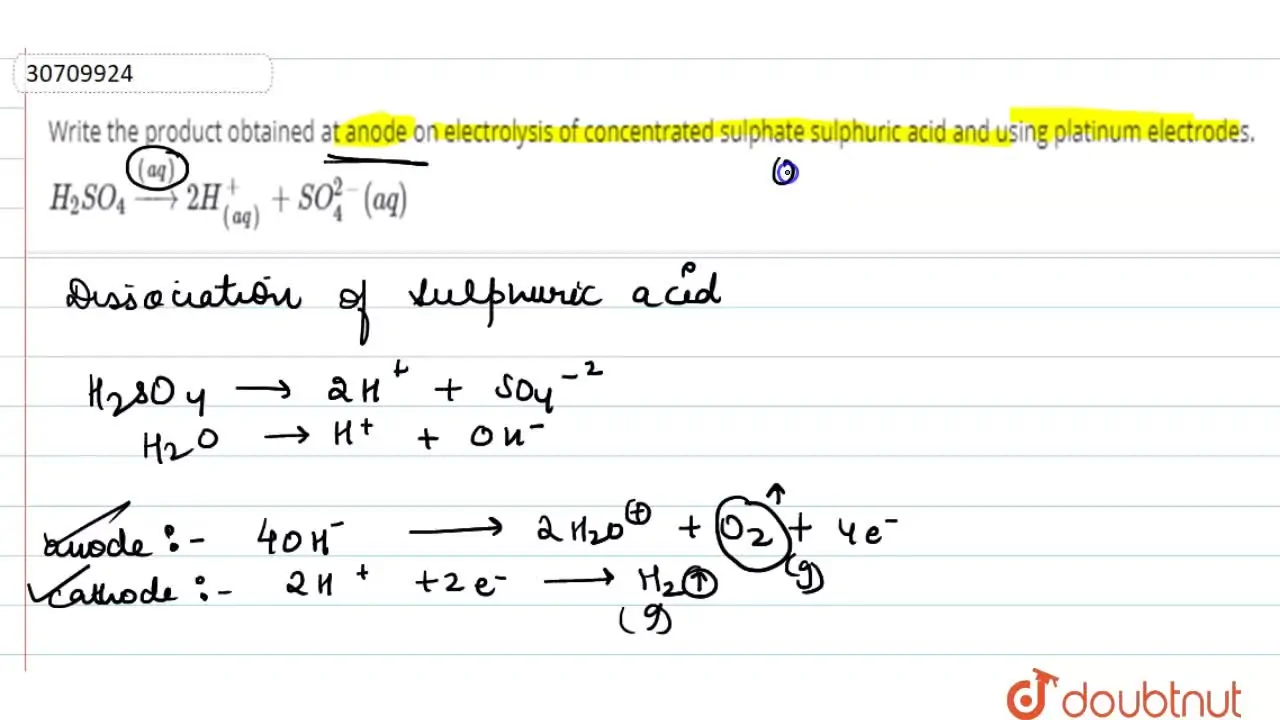 30709924
Write the product obtained at anode on electrolysis of concentrated sulphate sulphuric acid and using platinum electrodes.
H₂SO₄ —(aq)→ 2H⁺(aq) + SO₄²⁻(aq)
Dissociation of sulphuric acid
H₂SO₄ → 2H⁺ + SO₄⁻²
H₂O → H⁺ + OH⁻
anode :- 4OH⁻ → 2H₂O⊕ + O₂↑ + 4e⁻
(g)
Cathode :- 2H⁺ + 2e⁻ → H₂↑
(g)
doubtnut